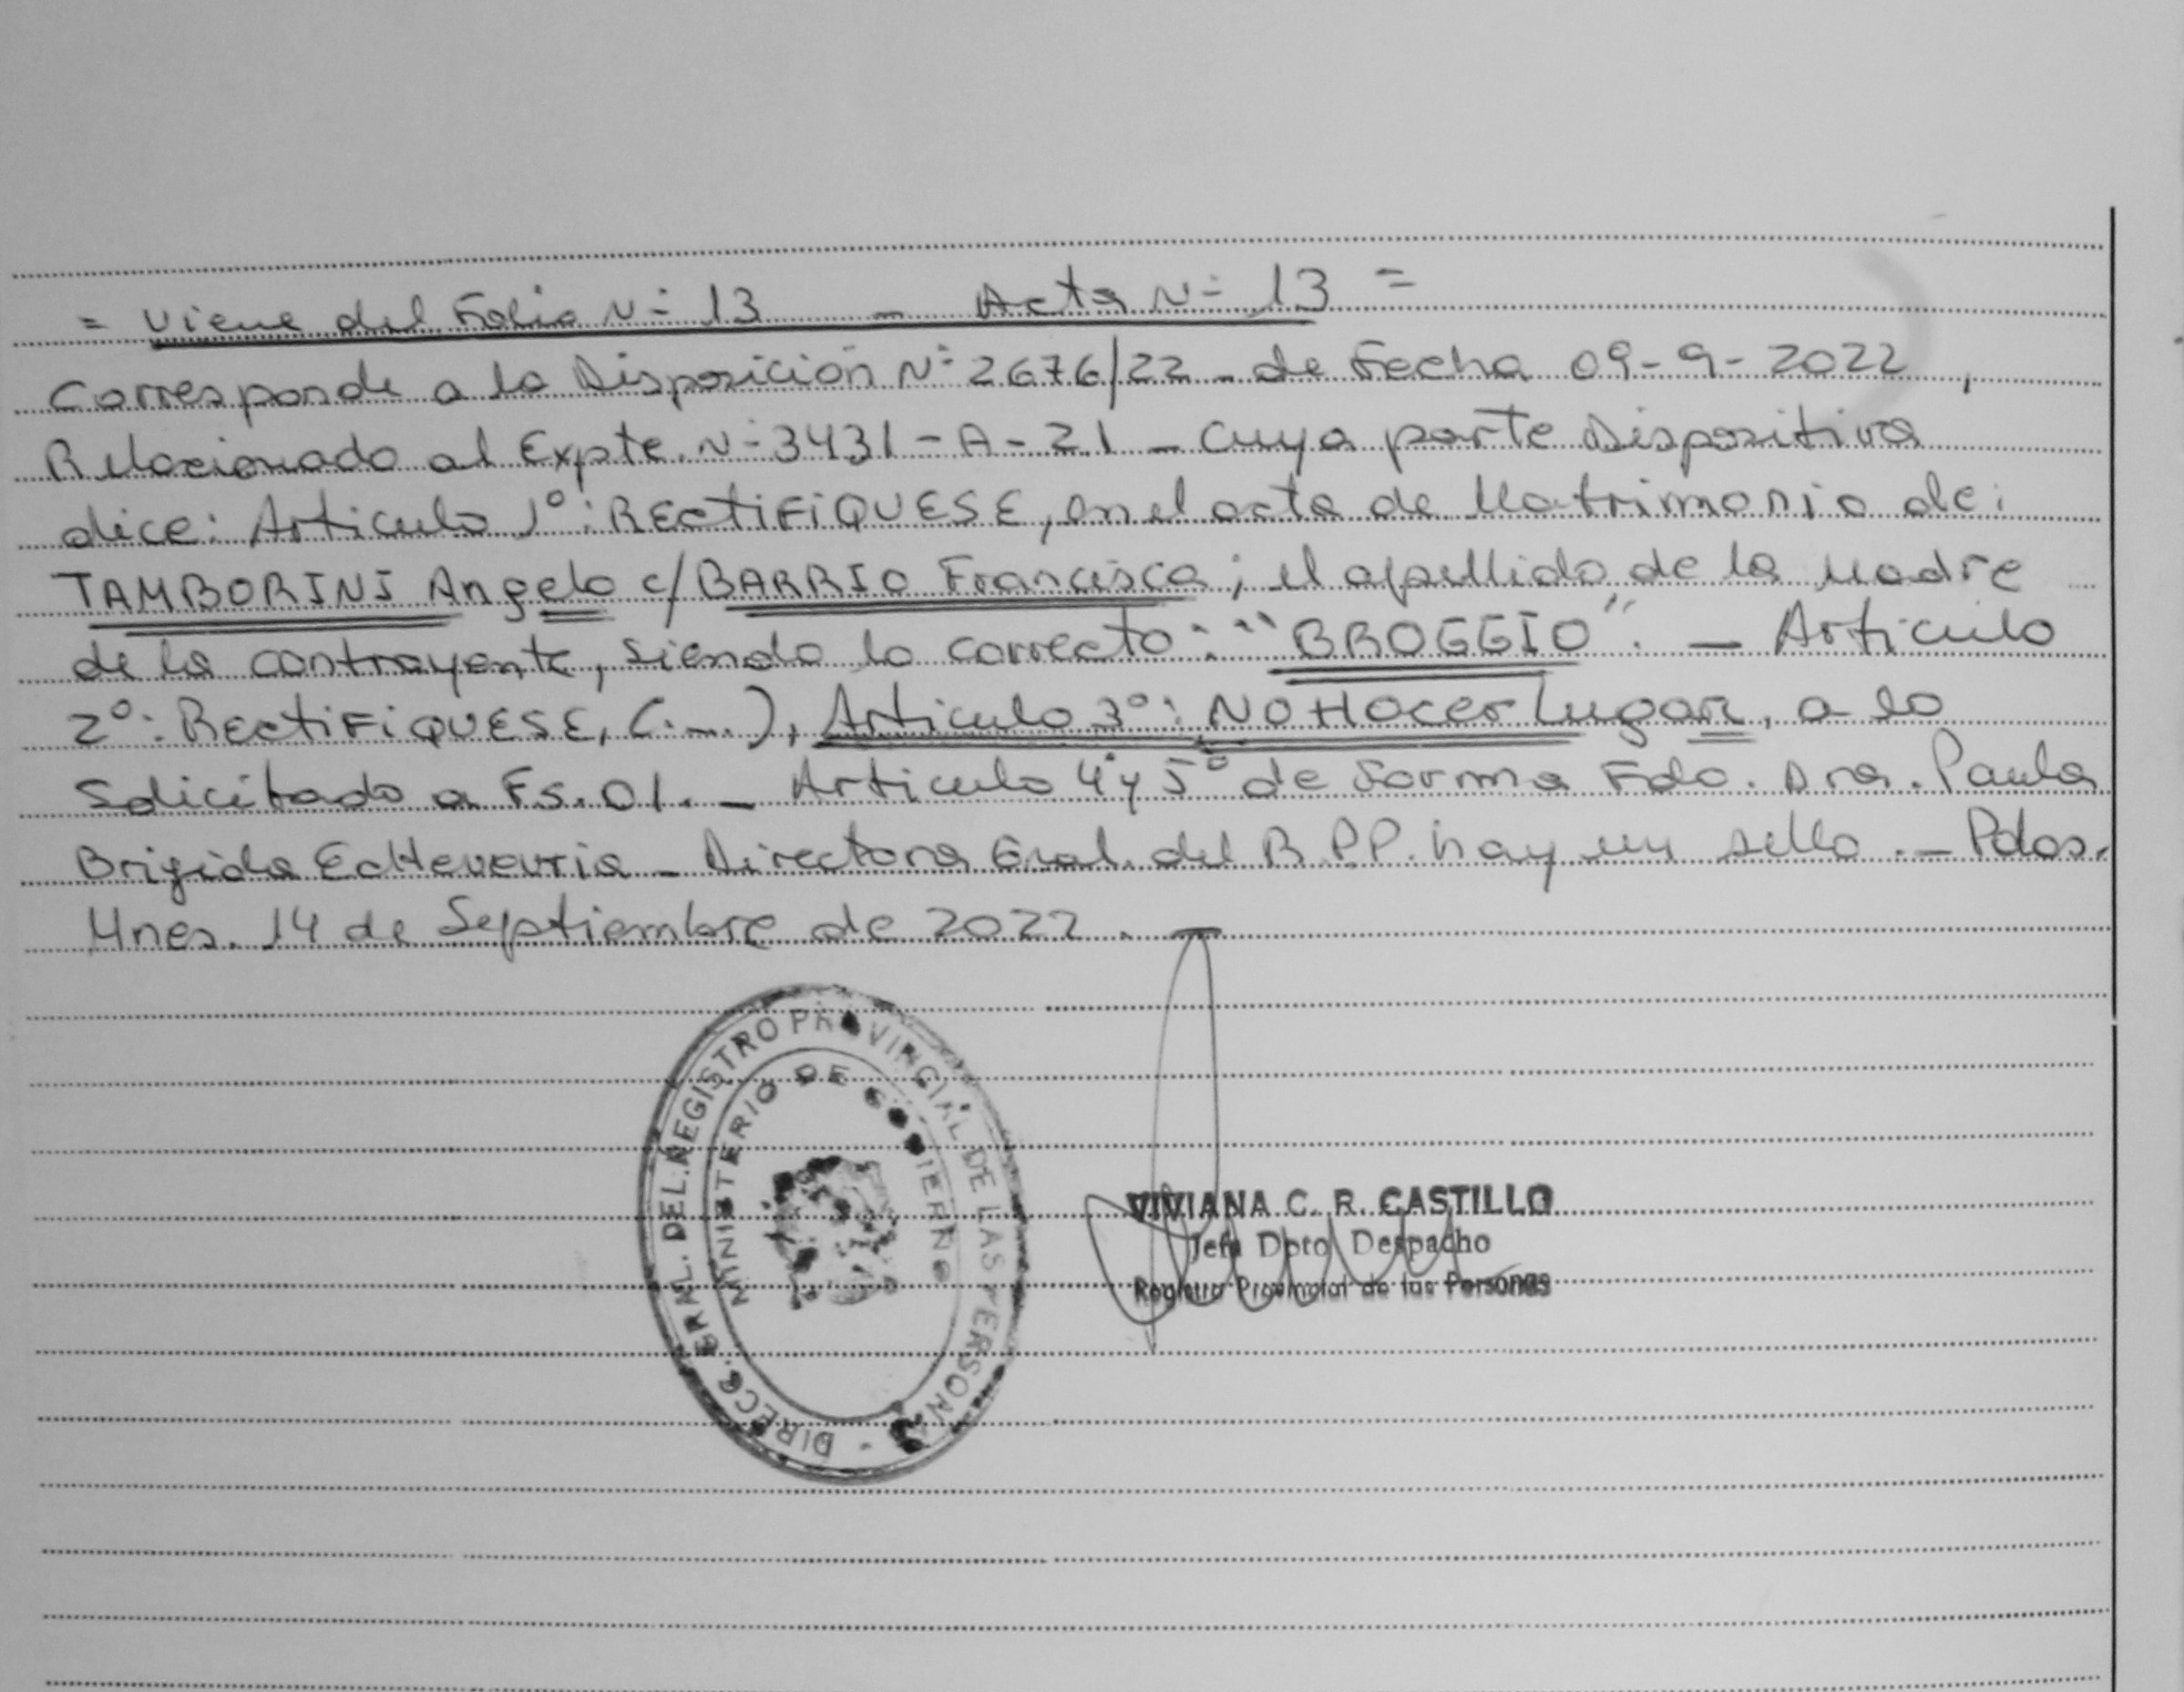 = Viene del Folio N° 13 - Acta N° 13 =
Corresponde a la Disposición N° 2676/22 - de Fecha 09-9-2022,
Relacionado al Expte. N° 3431-A-21 - Cuya parte Dispositiva
dice: Articulo 1°: RECTIFIQUESE, en el acta de Matrimonio de:
TAMBORINI Angelo c/ BARRIO Francisca; el apellido de la Madre
de la contrayente, siendo lo correcto: "BROGGIO". - Articulo
2°: RECTIFIQUESE, (....), Articulo 3°: NO Hacer Lugar, a lo
Solicitado a Fs. 01. - Articulo 4° y 5° de Forma Fdo. Dra. Paula
Brigida Echeverria - Directora Gral. del R.P.P. hay un sello. - Pdas.
Mnes. 14 de Septiembre de 2022. -
DIRECC. GRAL. DEL REGISTRO PROVINCIAL DE LAS PERSONAS -
MINISTERIO DE GOBIERNO
VIVIANA C. R. CASTILLO
Jefa Dpto Despacho
Registro Provincial de las Personas